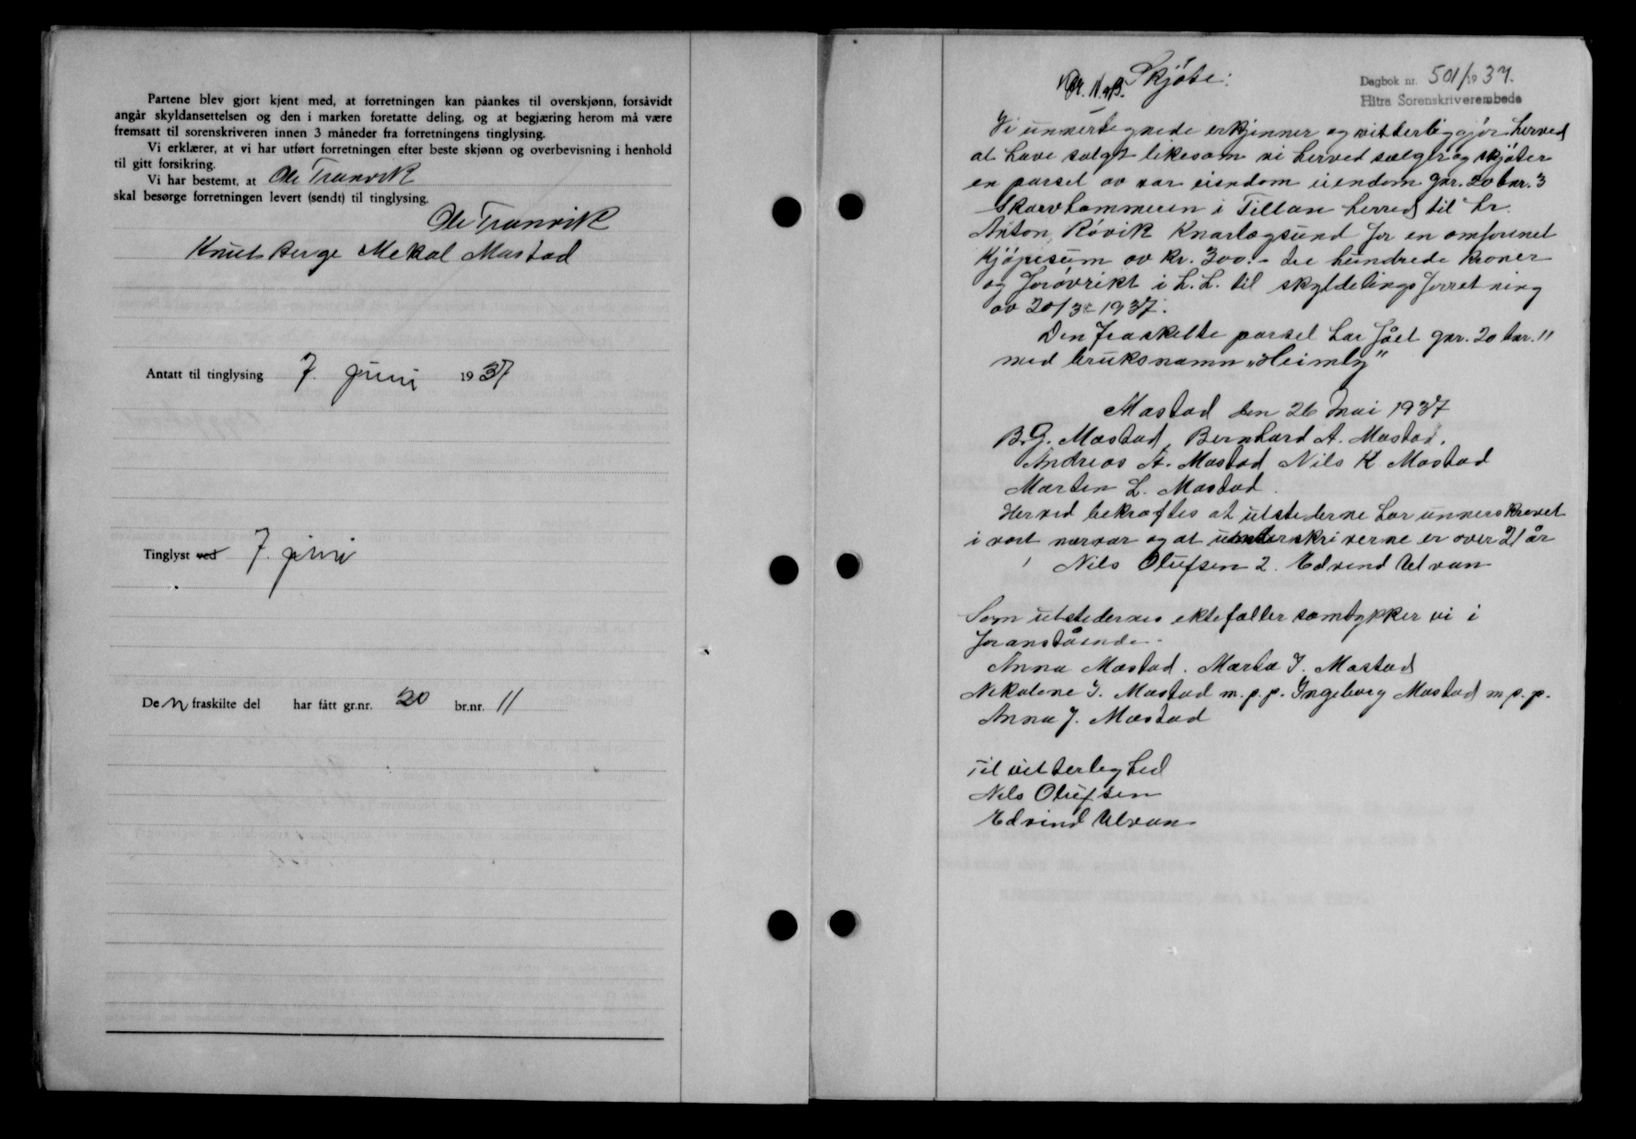 Partene blev gjort kjent med, at forretningen kan påankes til overskjønn, forsåvidt
angår skyldansettelsen og den i marken foretatte deling, og at begjæring herom må være
fremsatt til sorenskriveren innen 3 måneder fra forretningens tinglysing.
Vi erklærer, at vi har utført forretningen efter beste skjønn og overbevisning i henhold
til gitt forsikring.
Vi har bestemt, at Ole Tranvik
skal besørge forretningen levert (sendt) til tinglysing.
Ole Tranvik
Knut Berge Mekal Mastad
Antatt til tinglysing 7. juni 1937
Tinglyst ved 7. juni
Den fraskilte del har fått gr.nr. 20 br.nr. 11
Skjøte:
Dagbok nr. 501/1937.
Hitra Sorenskriverembede
Vi unnertegnede erkjenner og vitterliggjør herved
at have solgt likesom vi herved sælger og skjøter
en parsel av vår eiendom eiendom gnr. 20 bnr. 3
Skarvhammeren i Fillan herred til hr.
Anton Røvik Knarlagsund for en omforenet
kjøpesum av kr. 300.- tre hundrede kroner
og forøvrikt i h.h. til skyldelingsforretning
av 20/3 - 1937.
Den fraskelte parsel har fået gnr. 20 bnr. 11
med bruksnamn "Heimly"
Mastad den 26 mai 1937
B.G. Mastad, Bernhard A. Mastad.
Andreas A. Mastad Nils K Mastad
Marten L. Mastad.
Herved bekræftes at utstederne har unnerskrevet
i vort nærvær og at underskriverne er over 21 år
1 Nils Olufsen 2. Edvind Ulvan
Som utstedernes ektefæller samtykker vi i
foranstående.
Anna Mastad. Marta J. Mastad
Nikoline J. Mastad m.p.p. Ingeborg Mastad m.p.p.
Anna J. Mastad
Til vitterlighed
Nils Olufsen
Edvind Ulvan